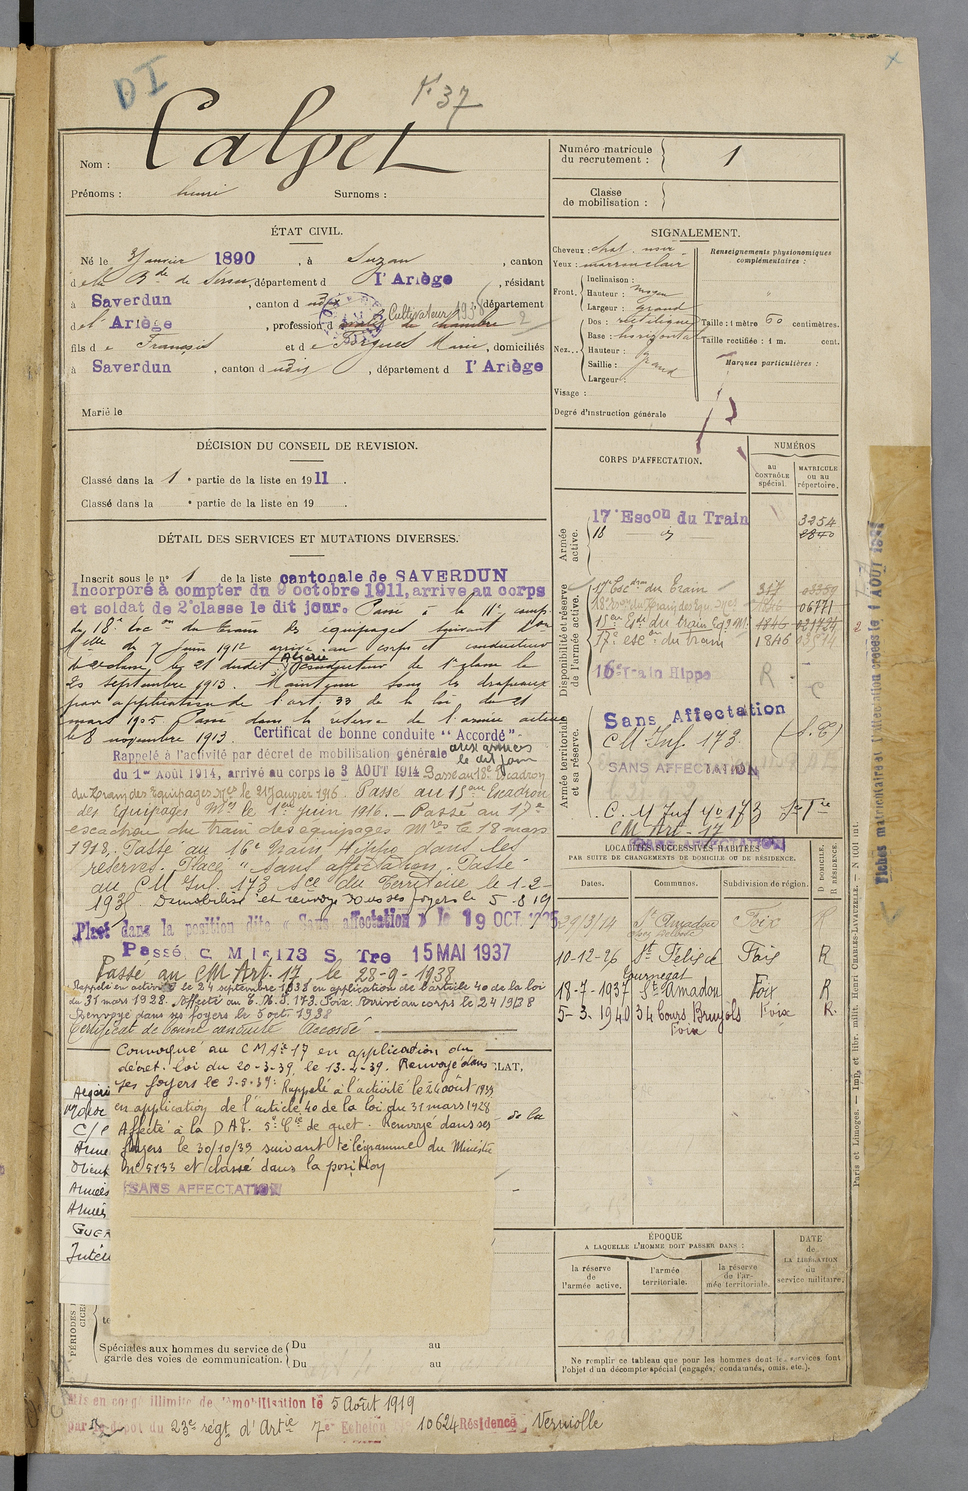 D I
N° 37
Nom : Calpet
Prénoms : henri Surnoms :
Numéro matricule
du recrutement : 1
Classe
de mobilisation :
ÉTAT CIVIL.
Né le 3 Janvier 1890 , à Suzan , canton
d e la B de de Sérou, département d l'Ariège , résidant
à Saverdun , canton d udis , département
d e l' Ariège , profession d Cultivateur 1938
valet de chambre 2
fils d e François et d e Marie , domiciliés
à Saverdun , canton d udis , département d l'Ariège
Marié le
SIGNALEMENT.
Cheveux : chat. noir
Yeux : marron clair
Front. Inclinaison :
Hauteur : moyen
Largeur : grand
Nez... Dos : rectiligne
Base : horizontal
Hauteur :
Saillie : grand
Largeur :
Renseignements physionomiques
complémentaires :
Taille : 1 mètre 60 centimètres.
Taille rectifiée : 1 m. cent.
Marques particulières :
Visage :
Degré d'instruction générale
DÉCISION DU CONSEIL DE REVISION.
Classé dans la 1 e partie de la liste en 1911 .
Classé dans la e partie de la liste en 19 .
DÉTAIL DES SERVICES ET MUTATIONS DIVERSES.
Inscrit sous le n° 1 de la liste cantonale de SAVERDUN
Incorporé à compter du 9 octobre 1911, arrive au corps
et soldat de 2e classe le dit jour. Passé à la 11e comp.
du 18e Esc on du train des équipages suivant D on
M elle du 7 juin 1912 arrivé au corps et conducteur
de 2e classe le 21 dudit Algérie Conducteur de 1e classe le
20 septembre 1913. Maintenu sous les drapeaux
par application de l'art. 33 de la loi du 21
mars 1905. Passé dans la réserve de l'armée active
le 8 novembre 1913. Certificat de bonne conduite "Accordé"
Rappelé à l'activité par décret de mobilisation générale aux armées
le dit jour
du 1er Août 1914, arrivé au corps le 3 AOUT 1914 Passé au 18e Escadron
du Train des Equipages M res le 21 Janvier 1916. Passé au 15 eme Escadron
des Equipages M res le 1er juin 1916. - Passé au 17e
escadron du train des equipages M res le 18 mars
1918. Passé au 16e Train Hippo dans les
réserves. Placé " sans affectation. Passé
au CM Inf. 173 S ce du Territoire le 1-2-
193 . Demobilisé et renvoyé dans ses foyers le 5-8-19
Placé dans la position dite « Sans affectation » le 19 OCT. 1935
Passé C M I 173 S Tre 15 MAI 1937
Passé au CM Art. 17, le 28-9-1938
Rappelé en activité le 24 septembre 1938 en application de l'article 40 de la loi
du 31 mars 1928. Affecté au C.M.I. 173. Foix. Arrivé au corps le 24/9/38
Renvoyé dans ses foyers le 5 oct. 1938
Certificat de bonne conduite accordé
Convoqué au C M Ar 17 en application du
décret-loi du 20-3-39, le 13-4-39. Renvoyé dans
ses foyers le 3-5-39. Rappelé à l'activité le 24 août 1939
en application de l'article 40 de la loi du 31 mars 1928
Affecté à la D A T. 5e Cie de guet. Renvoyé dans ses
foyers le 30/10/39 suivant télégramme du Ministre
N° 5133 et classé dans la position
SANS AFFECTATION
CLAT,
de la
Algérie
Maroc
C/
Armé
Orient
Armées
Armées
GUER
Intér
CORPS D'AFFECTATION.
NUMÉROS
au
CONTRÔLE
spécial.
MATRICULE
ou au
répertoire.
Armée
active.
17e Escon du Train 3254
18 - 2840
Disponibilité et réserve
de l'armée active.
17e Esc dron du Train 317
18e Esc on du Train des Equ. M res 1846 06771
15eme Esc du train Eq. M. 1846
17e esc on du train 1846
16e Train Hippo R
C
Armée territoriale
et sa réserve.
Sans Affectation
CM Inf. 173 (S.T)
SANS AFFECTATION
C. M Inf N° 173 S ce T re
CM Art-17
SANS AFFECTATION
LOCALITÉS SUCCESSIVES HABITÉES
PAR SUITE DE CHANGEMENTS DE DOMICILE OU DE RÉSIDENCE.
D DOMICILE.
R RÉSIDENCE.
Dates. Communes. Subdivision de région.
29/3/14 St Amadou Foix
10-12-26 St Félix de Tournegat Foix R
18-7-1937 St Amadou Foix R
5-3-1940 34 Cours Bruyols Foix R.
Foix
ÉPOQUE
A LAQUELLE L'HOMME DOIT PASSER DANS :
la réserve
de
l'armée active.
l'armée
territoriale.
la réserve
de l'ar-
mée territoriale.
DATE
de
LA LIBÉRATION
du
service militaire.
Ne remplir ce tableau que pour les hommes dont les services font
l'objet d'un décompte spécial (engagés, condamnés, omis, etc.).
PÉRIODES
Spéciales aux hommes du service de
garde des voies de communication.
Du au
Du au
Mis en congé illimité de démobilisation le 5 Août 1919
par le dépôt du 23e régt d'Artie 7e Echelon 10624 Résidence Verniolle
Paris et Limoges. — Imp. et libr. milit. Henri CHARLES-LAVAUZELLE.
Fiches matriculaire et d'affectation créées le 1 AOUT